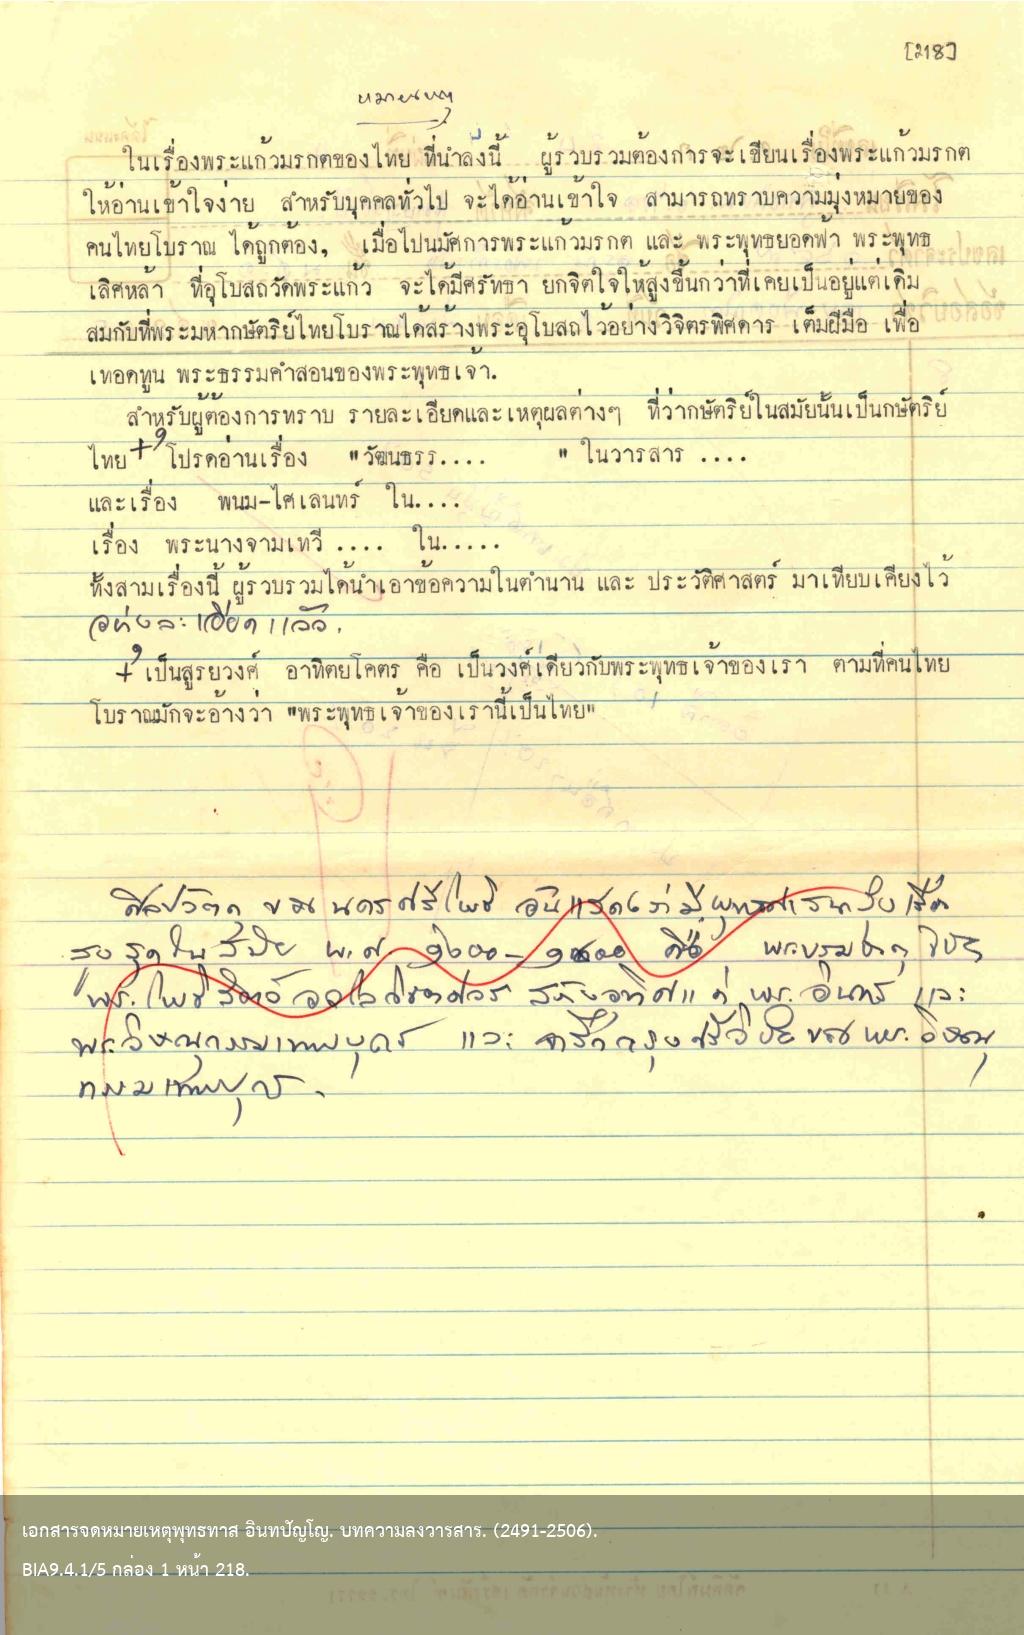 [218]
หมายเหตุ
ในเรื่องพระแก้วมรกตของไทย ที่นำลงนี้ ผู้รวบรวมต้องการจะเขียนเรื่องพระแก้วมรกต
ให้อ่านเข้าใจง่าย สำหรับบุคคลทั่วไป จะได้อ่านเข้าใจ สามารถทราบความมุ่งหมายของ
คนไทยโบราณ ได้ถูกต้อง, เมื่อไปนมัศการพระแก้วมรกต และ พระพุทธยอดฟ้า พระพุทธ
เลิศหล้า ที่อุโบสถวัดพระแก้ว จะได้มีศรัทธา ยกจิตใจให้สูงขึ้นกว่าที่เคยเป็นอยู่แต่เดิม
สมกับที่พระมหากษัตริย์ไทยโบราณได้สร้างพระอุโบสถไว้อย่างวิจิตรพิศดาร เต็มฝีมือ เพื่อ
เทอดทูน พระธรรมคำสอนของพระพุทธเจ้า.
สำหรับผู้ต้องการทราบ รายละเอียดและเหตุผลต่างๆ ที่ว่ากษัตริย์ในสมัยนั้นเป็นกษัตริย์
ไทย + โปรดอ่านเรื่อง "วัฒนธรร.... " ในวารสาร ....
และเรื่อง พนม-ไศเลนทร์ ใน....
เรื่อง พระนางจามเทวี .... ใน.....
ทั้งสามเรื่องนี้ ผู้รวบรวมได้นำเอาข้อความในตำนาน และ ประวัติศาสตร์ มาเทียบเคียงไว้
อย่างละเอียดแล้ว.
+ เป็นสูรยวงศ์ อาทิตยโคตร คือ เป็นวงศ์เดียวกับพระพุทธเจ้าของเรา ตามที่คนไทย
โบราณมักจะอ้างว่า "พระพุทธเจ้าของเรานี้เป็นไทย"
ศิลปวัตถุ ของ นครศรีโพธิ์ อันแสดงว่ามีพุทธศาสนารุ่งเรือง
สูงสุดในสมัย พ.ศ. คือ พระบรมธาตุไชยา
พระโพธิสัตว์อวโลกิเตศวร สร้างอุทิศแด่ พระอินทร์ และ
พระวิษณุกรรมเทพบุตร และ จารึกกรุงศรีวิชัยของพระวิษณุ
กรรมเทพบุตร.
เอกสารจดหมายเหตุพุทธทาส อินทปัญโญ. บทความลงวารสาร. (2491-2506).
BIA9.4.1/5 กล่อง 1 หน้า 218.